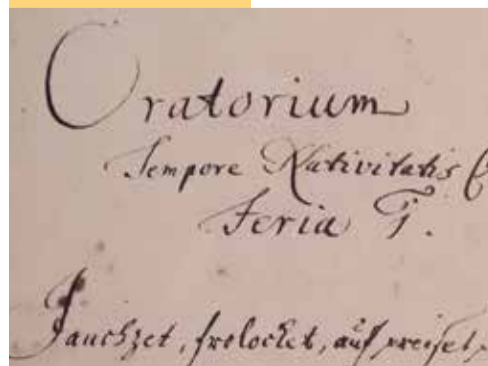 Oratorium
Tempore Nativitatis C
Feria I.
Jauchzet, frolocket, auf preiset,